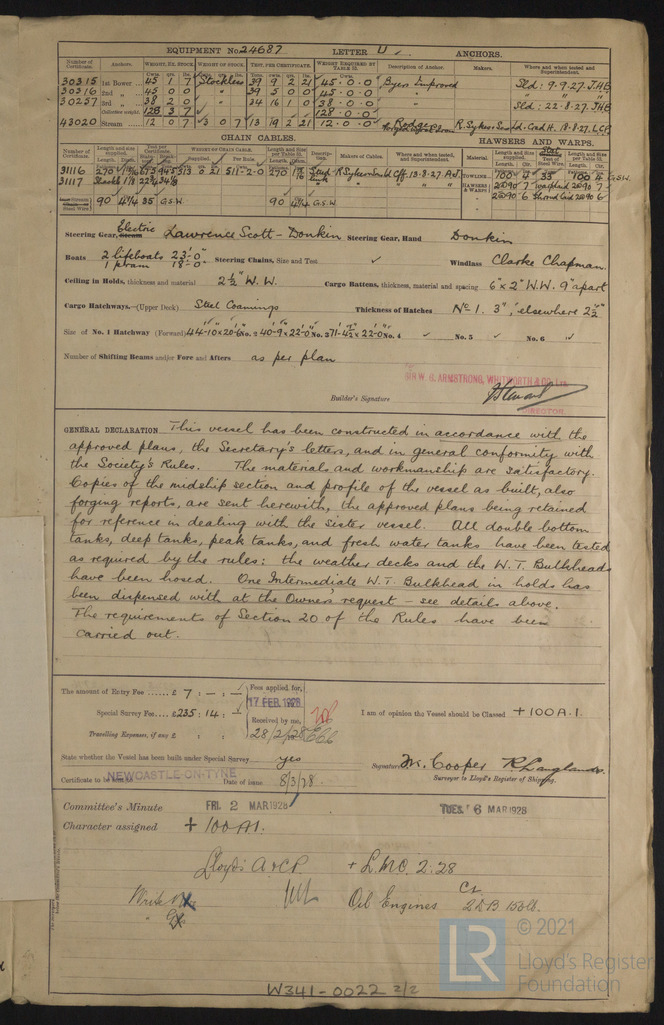 EQUIPMENT No 24687 LETTER U ANCHORS.
Number of Certificate. Anchors. WEIGHT, EX. STOCK WEIGHT OF STOCK. TEST, PER CERTIFICATE. WEIGHT REQUIRED BY TABLE 31. Description of Anchor. Makers. Where and when tested and Superintendent.
30315 1st Bower 45 1 7 Stockless 39 9 2 21 45-0-0 Byers Improved Sld: 9.9.27. J.H.B
30316 2nd " 45 0 0 " 39 5 0 0 45-0-0 " "
30257 3rd " 38 2 0 " 34 16 1 0 38-0-0 Sld: 22-8-27. J.H.B
Collective weight. 128 3 7 128-0-0
43020 Stream 12 0 7 3 0 7 13 19 2 21 12-0-0 Rodgers R. Sykes & Son Ld. Crad H. 18.8.27. L.C.P.
CHAIN CABLES. HAWSERS AND WARPS.
Number of Certificate. Length and size supplied. WEIGHT OF CHAIN CABLE. Length and size per Table 31. Description. Makers of Cables. Where and when tested, and Superintendent. Material. Length and Size supplied. Test of Steel Wire Length and Size per Table 31.
31116 270 313 0 21 511-2-0 270 Stud R. Sykes & Son Ld Cff. 13.8.27. TOWLINE 100 100 G.S.W.
31117 Shackle 1 7/8 HAWSERS & WARPS 2@90 7 2@90 7
90 4 1/4 35 G.S.W. 90 4 1/4 G.S.W. 2@90 6 2@90 6
Steering Gear, Steam Electric Lawrence Scott - Donkin Steering Gear, Hand Donkin
Boats 2 lifeboats 23'-0" Steering Chains, Size and Test ✓ Windlass Clarke Chapman.
1 pram 18'-0"
Ceiling in Holds, thickness and material 2 1/2" W.W. Cargo Battens, thickness, material and spacing 6" x 2" W.W. 9" apart
Cargo Hatchways.—(Upper Deck) Steel Coamings Thickness of Hatches No 1. 3", elsewhere 2 1/2"
Size of No. 1 Hatchway (Forward) 44'-10" x 20'-6" No. 2 40'-9" x 22'-0" No. 3 71'-4 1/2" x 22'-0" No. 4 ✓ No. 5 ✓ No. 6 ✓
Number of Shifting Beams and/or Fore and Afters as per plan
SIR W. G. ARMSTRONG, WHITWORTH & CO. Ltd.
Builder's Signature
DIRECTOR.
GENERAL DECLARATION This vessel has been constructed in accordance with the
approved plans, the Secretary's letters, and in general conformity with
the Society's Rules. The materials and workmanship are satisfactory.
Copies of the midship section and profile of the vessel as built, also
forging reports, are sent herewith, the approved plans being retained
for reference in dealing with the sister vessel. All double bottom
tanks, deep tanks, peak tanks, and fresh water tanks have been tested
as required by the rules: the weather decks and the W.T. Bulkheads
have been hosed. One Intermediate W.T. Bulkhead in holds has
been dispensed with at the Owner's request - see details above.
The requirements of Section 20 of the Rules have been
carried out.
The amount of Entry Fee ...... £ 7 : — : — Fees applied for,
17 FEB. 1928
Special Survey Fee ... £235 : 14 : — Received by me, I am of opinion the Vessel should be Classed + 100 A.1.
Travelling Expenses, if any £ : : 28/2/1928
State whether the Vessel has been built under Special Survey yes Signature M. Cooper R. Langlands
Certificate to be sent to NEWCASTLE-ON-TYNE Date of issue 8/3/28. Surveyor to Lloyd's Register of Shipping.
Committee's Minute FRI. 2 MAR 1928 TUES. 6 MAR 1928
Character assigned + 100 A1.
Lloyd's A&CP. + L.M.C. 2.28
Oil Engines 2 D B 150 lb.
W341-0022 2/2
© 2021
LR
Lloyd's Register
Foundation